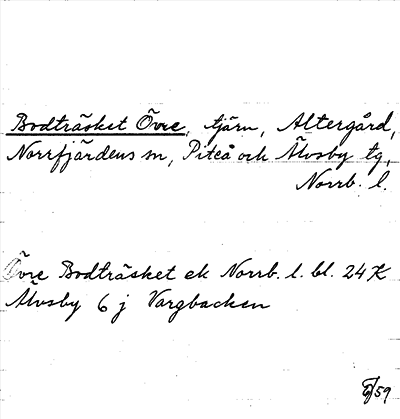 Bodträsket Övre, tjärn, Altergård,
Norrfjärdens sn, Piteå och Älvsby tg,
Norrb. l.
Övre Bodträsket ek Norrb. l. bl. 24 K
Älvsby 6 j Vargbacken
/59